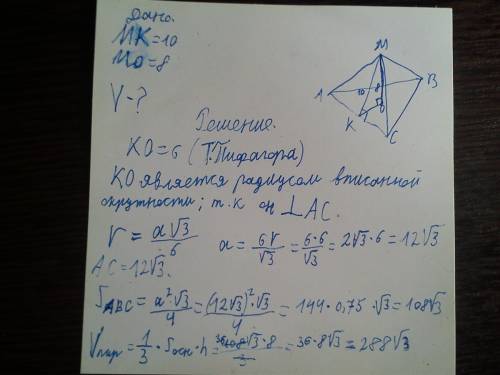 Дано.
МК=10
МО=8
V-?
М
А
10
8
В
К
О
С
Решение.
КО=6 (Т.Пифагора)
КО является радиусом вписанной
окрутности; т.к он ⊥АС.
r = a√3/6 a = 6r/√3 = 6·6/√3 = 2√3·6 = 12√3
АС=12√3.
S_ABC = a²·√3/4 = (12√3)²·√3/4 = 144·0,75·√3 = 108√3
V_пир = 1/3 · S_осн · h = 108√3·8/3 = 36·8√3 = 288√3